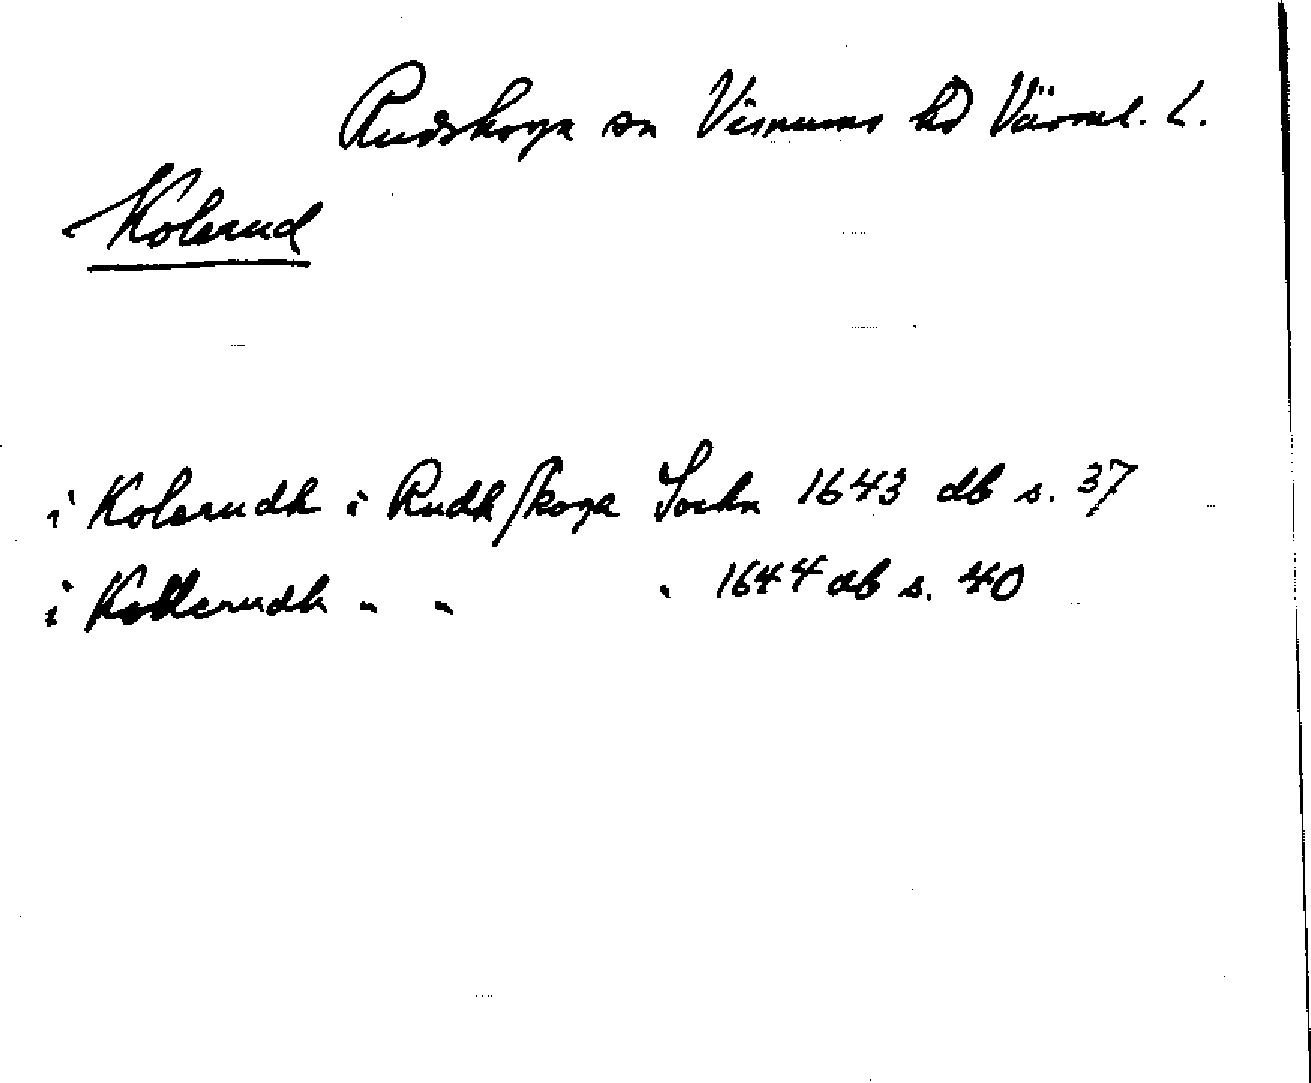 Rudskoga sn Visnums hd Värml. L.
Kolerud
i Kolerudh i Rudhſkoga Sochn 1643 db s. 37
i Kollerudh " " " 1644 db s. 40